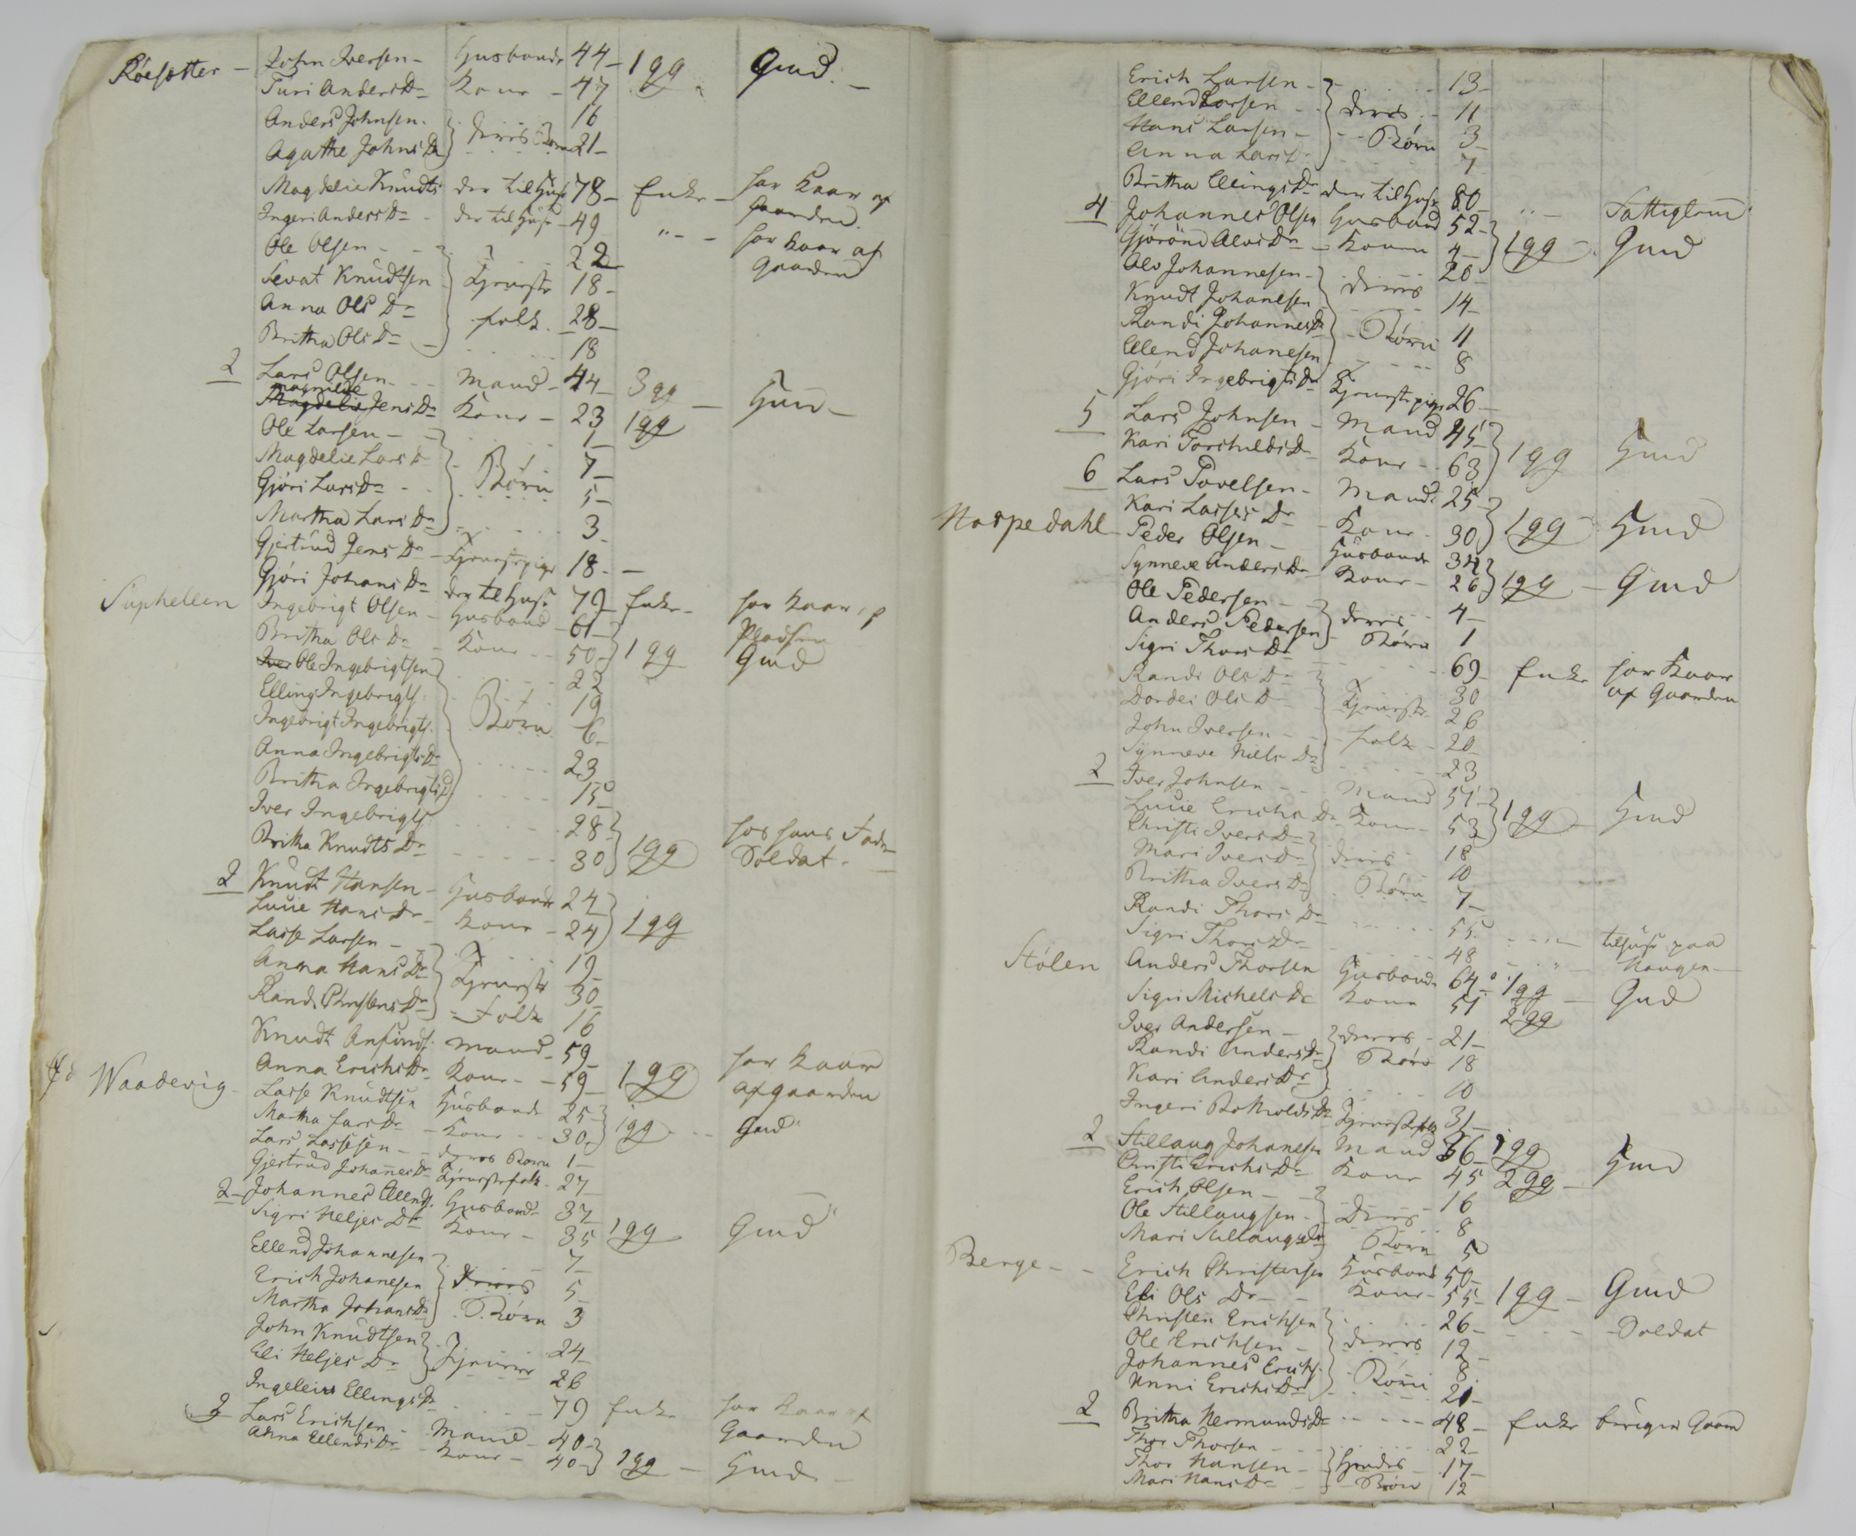 Røesetter - John Iversen - Husbonde 44 - 1 gg Gmd. -
Turi Anders Dr Kone - 47
Anders Johnsen. 16
Agathe Johns Dr deres Børn 21 -
Magdelie Knudts der til Huse 78 - Enke - har Kaar af Gaarden
Ingeri Anders Dr - der til Huse - 49 " - - har Kaar af Gaarden
Ole Olsen - - 22
Sevat Knudtsen Tjeneste 18 -
Anna Ols Dr folk. 28 -
Brittha Ols Dr - 18
2 Lars Olsen - - Mand - 44 - 3 gg - Hmd -
Jens Dr Kone - 23 1 gg
Ole Larsen - - 1 -
Magdelie Lars Dr Børn 7 -
Gjöri Lars Dr - 5 -
Martha Lars Dr 3 -
Gjertrud Jens Dr - Tjenestepige 18 - -
Gjöri Johans Dr der til Huse 79 - Enke - har Kaar af Pladsen
Suphellen Ingebrigt Olsen - Husbond - 61 - 1 gg Gmd
Brittha Ols Dr - Kone - - 50 -
Ole Ingebrigtsen 22
Elling Ingebrigts. 19
Ingebrigt Ingebrigts. Børn 6 -
Anna Ingebrigts Dr 23
Brittha Ingebrigts D 15
Iver Ingebrigts. 28 - 1 gg hos hans Fader Soldat -
Britha Knudts Dr 30
2 Knudt Hansen - Husbonde 24 1 gg
Lucie Hans Dr - Kone - 24
Lasse Larsen - 19
Anna Hans Dr Tjeneste 30
Randi Christens Dr - Folk 16
Knudt Anfinds. Mand - 59 - 1 gg har Kaar af gaarden
Anna Erichs Dr Kone - - 59 -
Waadevig - Lasse Knudtsen Husbonde 25 1 gg - - Gmd
Martha Lars Dr - Kone - - 30
Lars Lassesen - - deres Børn 1 -
Gjertrud Johanes Dr Tjenestefolk - 27 -
2 - Johannes Ellends. Husbond - 37 1 gg Gmd
Sigri Heljes Dr Kone - 35
Ellend Johannesen 7 -
Erich Johanesen deres 5 -
Martha Johans Dr Børn 3
John Knudtsen 24 -
Eli Heljes Dr Tjenere 26
Ingeleiv Ellings Dr 79 Enke har Kaar af Gaarden
3 Lars Erichsen - Mand - 40 - 1 gg - Hmd -
Anna Ellends Dr - Kone - 40 -
Erich Larsen - 13 -
Ellend Larsen - deres - 11
Hans Larsen - - - Børn 3 -
Anna Lars Dr 7
Brittha Ellings Dr der til Huse 80 - " - Fattiglem
4 Johannes Olsen Husbond 52 - 1 gg - Gmd
Gjörönd Alvs Dr - Konen
Alv Johannesen - 20 -
Knudt Johanesen deres 14 -
Randi Johannes Dr - Børn 11
Ellend Johanesen 8
Gjöri Ingebrigts Dr Tjenestepige 26 -
5 Lars Johnsen - Mand 45 1 gg Hmd
Kari Torchilds Dr Kone - 63
6 Lars Povelsen - Mand 25 1 gg - Hmd
Kari Lasses Dr - Kone - 30
Haspedahl - Peder Olsen - Husbonde 34 1 gg - Gmd
Synneve Anders Dr - Kone - 26
Ole Pedersen - deres - 4 -
Anders Pedersen - Børn 1
Sigri Thors Dr 69 Enke har Kaar af Gaarden
Randi Ols Dr - 30
Dordei Ols D - Tjeneste 26
John Iversen - - folk - 20
Synneve Niels Dr 23
2 Iver Johnsen - - Mand 51 - 1 gg - Hmd
Lucie Erichs Dr Kone - 53
Christi Ivers Dr 18
Mari Ivers Dr deres 10
Brittha Ivers Dr Børn 7 -
Randi Thors Dr 55
Sigri Thors Dr 48 til huse paa Haugen -
Stølen Anders Thorsen Husbonde 64 - 1 gg - Gmd
Sigri Michels Dr Kone 51 2 gg
Iver Andersen - deres - 21 -
Randi Anders Dr Børn 18
Kari Anders Dr 10
Ingeri Botholds Dr Tjenestefolk 31 -
2 Stillaug Johanesen Mand 36 - 1 gg Hmd
Christi Erichs Dr Kone 45 2 gg -
Erich Olsen - 16
Ole Stillaugsen - Deres 8
Mari Stillaugs Dr Børn 5
Berge - - Erich Christensen Husbond 50 - 1 gg - Gmd
Eli Ols Dr - - Kone - 55 -
Christen Erichsen 26 - - - - Soldat
Ole Erichsen - deres 12 -
Johannes Erichs. Børn 8
Unni Erichs Dr 21 -
2 Brittha Hermunds Dr - - - - 48 - Enke beriger Gaard
Thor Thorsen - 22 -
Thor Hansen - hendes - 17 -
Mari Hans Dr - - Børn 12